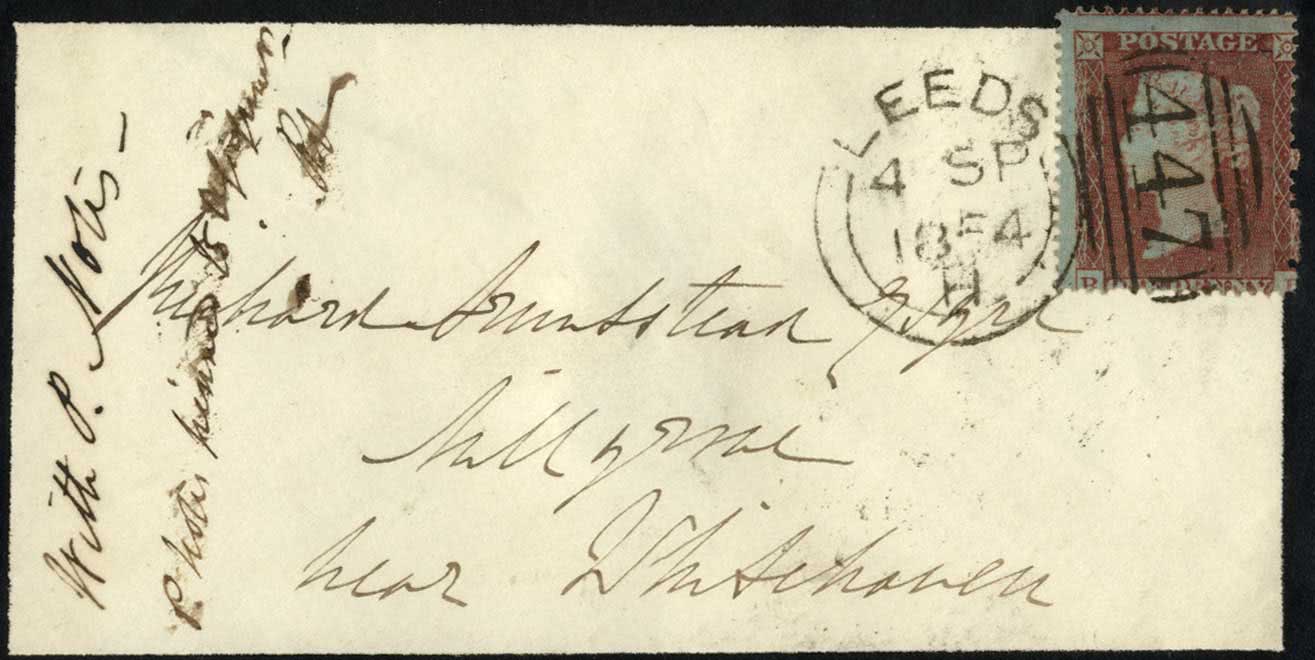 With P. Notis -
P. Notis
LEEDS
4 SP
1854
H
POSTAGE
447
PENNY
Richard Armitstead Esqre
near Whitehaven